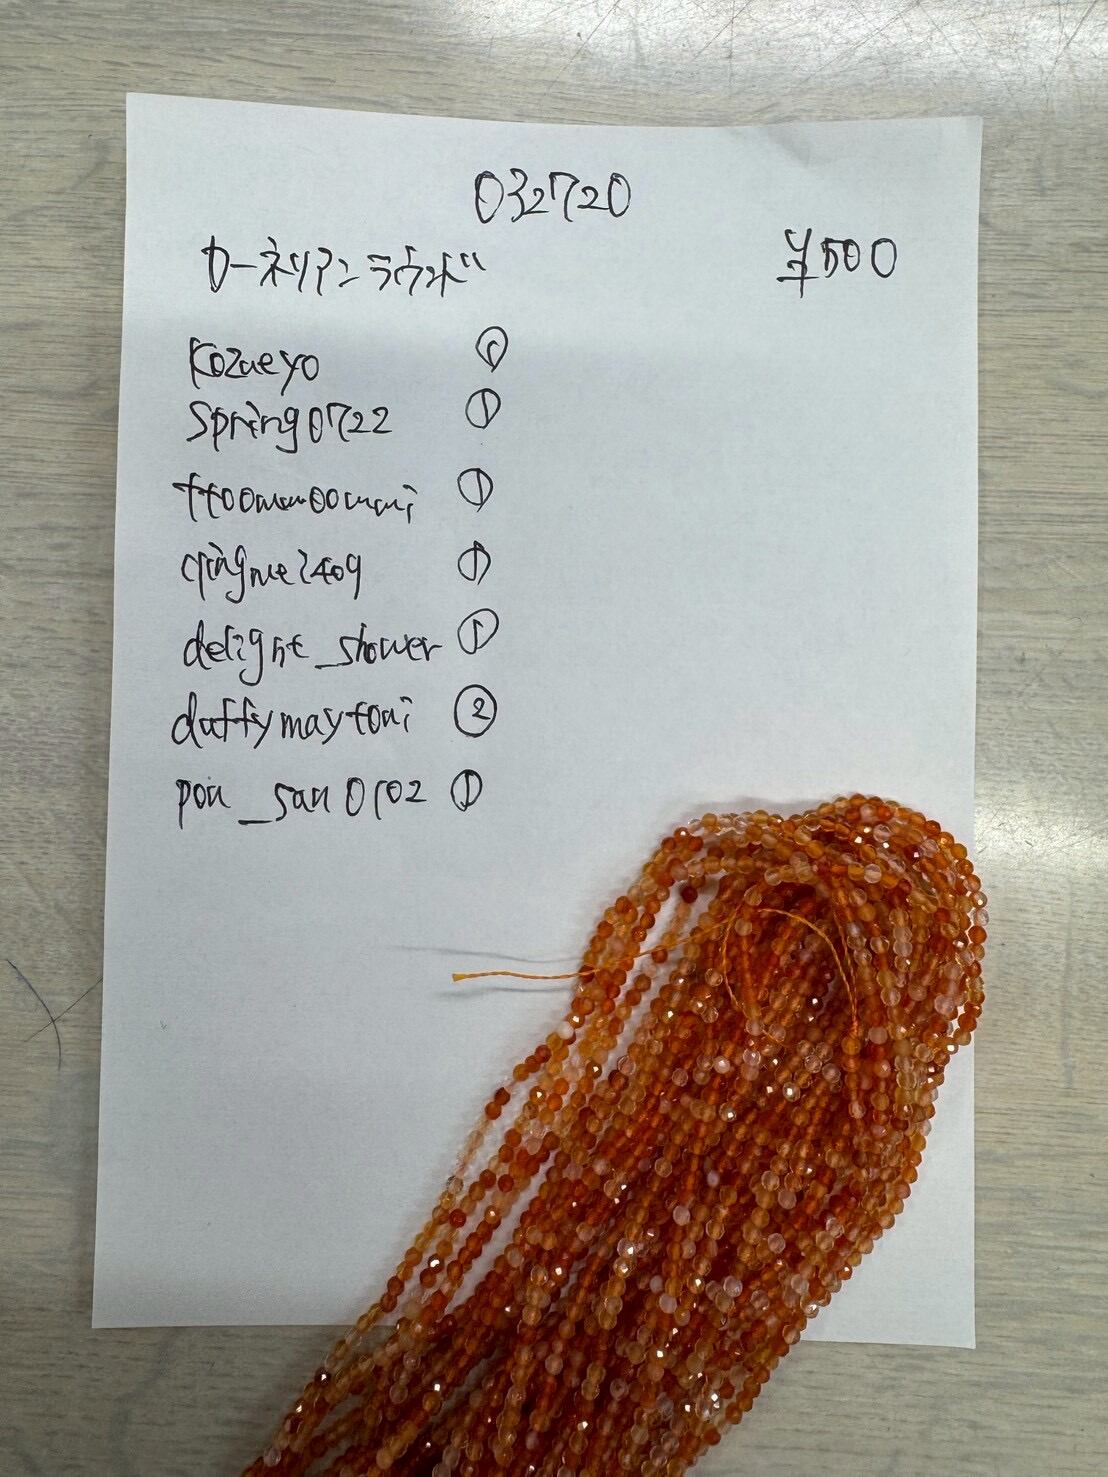 032720
カーネリアンラウンド
¥500
Kozueyo ①
Spring0722 ①
①
qingmei409 ①
delight_shower ①
daffymaytoni ②
pon_san0102 ①